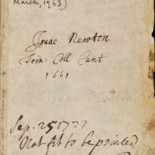 March, 1963)
Isaac Newton
Trin: Coll Cant
1661
Sep. 25 1727
Not fit to be printed